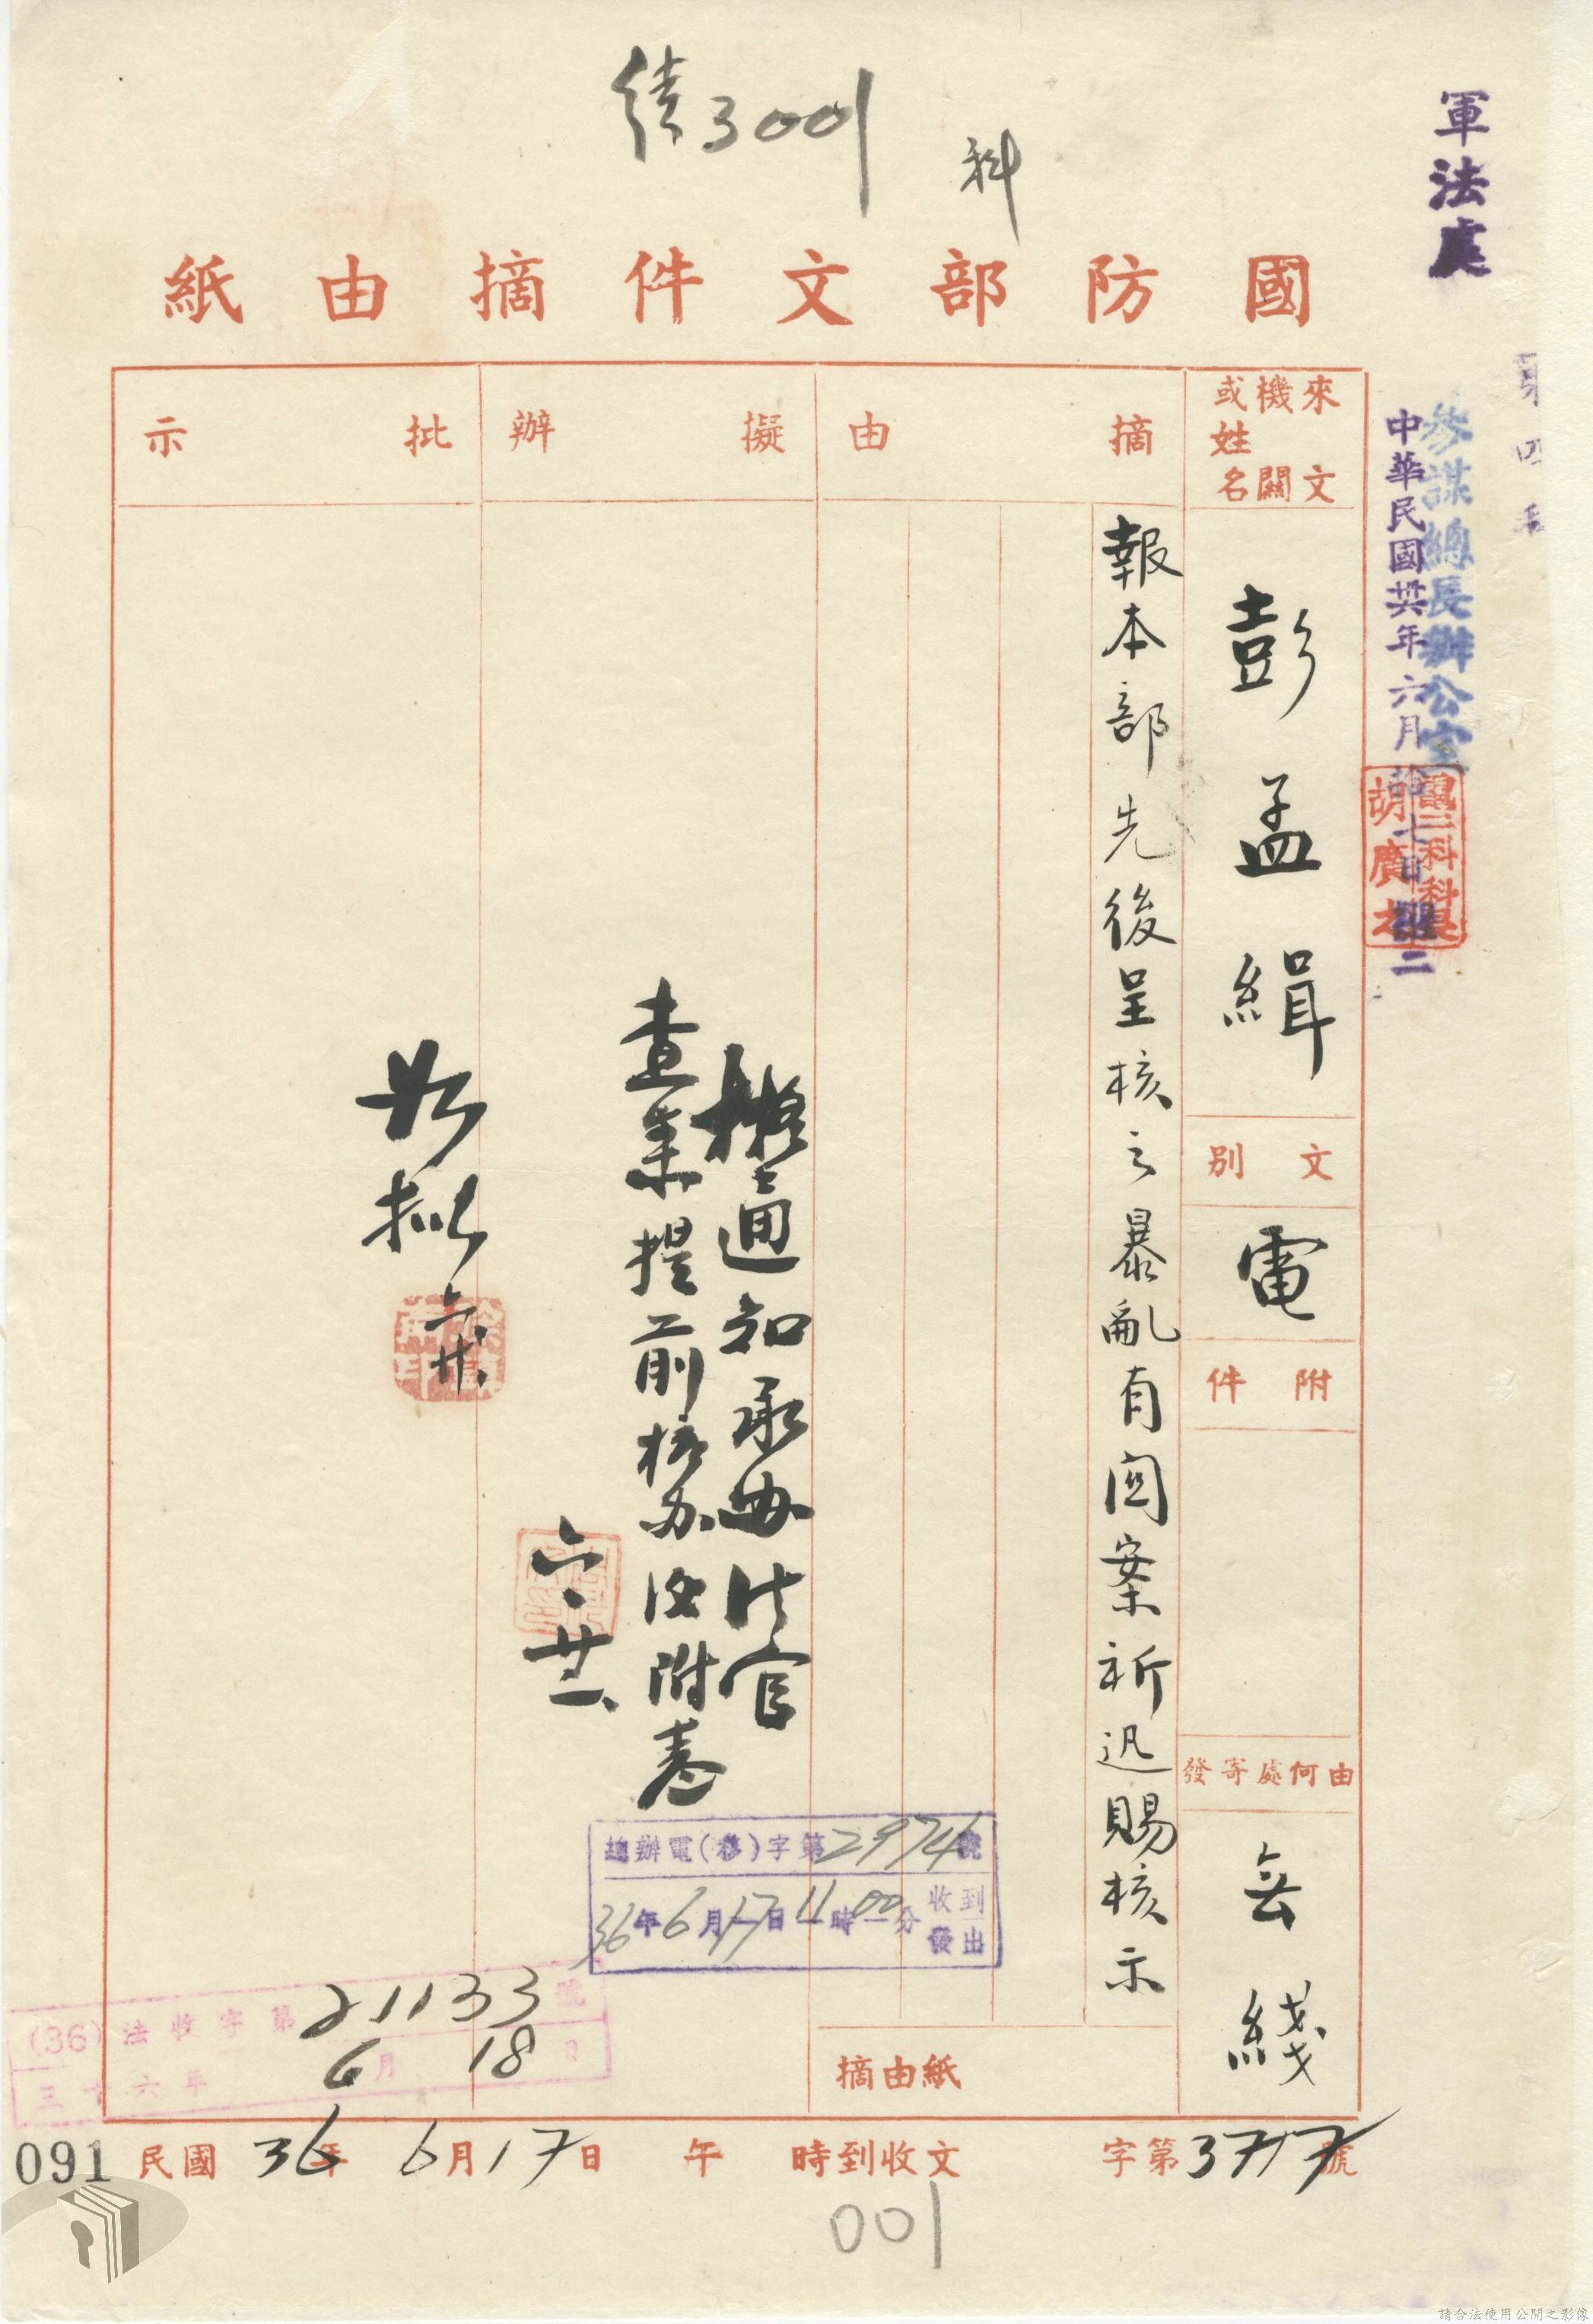 續3001
科
軍法處
國防部文件摘由紙
參謀總長辦公室
中華民國卅六年六月
第二科科長
胡廣
來文機關或姓名
彭孟緝
文別
電
附件
由何處寄發
無綫
摘由
報本部先後呈核之暴亂有関案祈迅賜核示
擬辦
擬通知承办法官
查案提前核办
附卷
六、廿一、
批示
如拟
總辦電(移)字第2974號
36年6月17日11時00分
收到
發出
(36)法收字第21133號
三十六年6月18日
摘由紙
字第3717號
民國36年6月17日 午 時到收文
091
001
請合法使用公開之影像